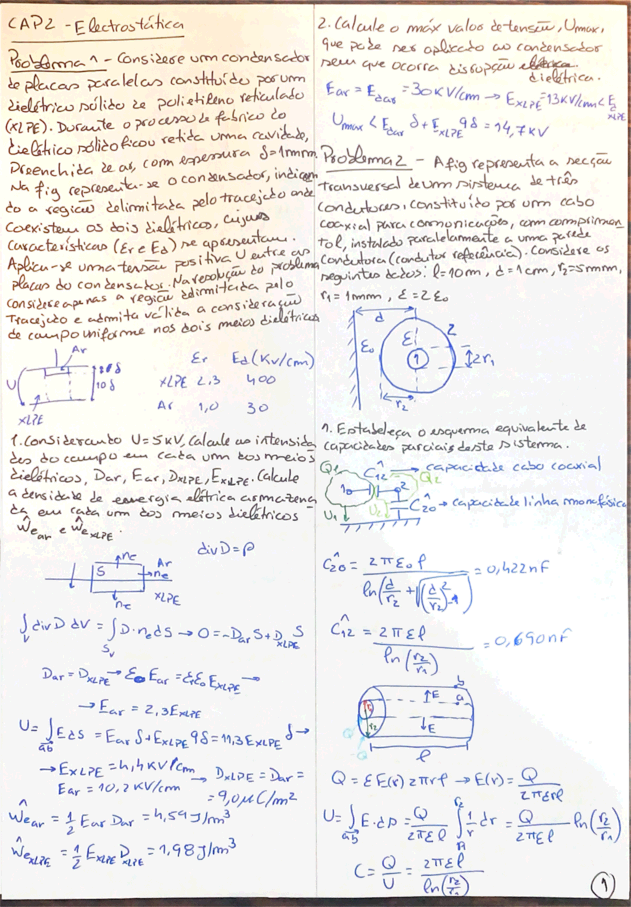 CAP2 - Electrostática
Problema 1 - Considere um condensador
de placas paralelas constituído por um
dielétrico sólido de polietileno reticulado
(XLPE). Durante o processo de fabrico do
dielétrico sólido ficou retida uma cavidade,
preenchida de ar, com espessura δ=1mm.
Na fig representa-se o condensador, indican
do a região delimitada pelo tracejado onde
coexistem os dois dielétricos, cujas
características (Er e Ed) se apresentam.
Aplica-se uma tensão positiva U entre as
placas do condensador. Na resolução do problema
considere apenas a região delimitada pelo
tracejado e admita válida a consideração
de campo uniforme nos dois meios dielétricos
Ar
U
δ
10δ
XLPE
Er Ed (KV/cm)
XLPE 2,3 400
Ar 1,0 30
1. Considerando U=5KV, calcule as intensida
des do campo em cada um dos meios
dielétricos, Dar, Ear, DXLPE, EXLPE. Calcule
a densidade de energia elétrica armazena
da em cada um dos meios dielétricos
ŵear e ŵeXLPE.
div D = ρ
S ne Ar
ne
ne XLPE
∫V div D dV = ∫Sv D·ne dS → 0 = -Dar S + DXLPE S
Dar = DXLPE → ε0 Ear = εrε0 EXLPE →
→ Ear = 2,3 EXLPE
U = ∫ab E ds = Ear δ + EXLPE 9δ = 11,3 EXLPE δ →
→ EXLPE = 4,4 KV/cm → DXLPE = Dar =
Ear = 10,2 KV/cm = 9,0 μC/m²
ŵear = 1/2 Ear Dar = 4,59 J/m³
ŵeXLPE = 1/2 EXLPE DXLPE = 1,98 J/m³
2. Calcule o máx valor de tensão, Umax,
que pode ser aplicado ao condensador
sem que ocorra disrupção
dielétrica.
Ear = Edar = 30 KV/cm → EXLPE = 13 KV/cm < Ed XLPE
Umax < Edar δ + EXLPE 9δ = 14,7 KV
Problema 2 - A fig representa a secção
transversal de um sistema de três
condutores, constituído por um cabo
coaxial para comunicações, com comprimen
to l, instalado paralelamente a uma parede
condutora (condutor referência). Considere os
seguintes dados: l=10m, d=1cm, r2=5mm,
r1=1mm, ε=2ε0
d
ε0 ε 2
1 2r1
r2
1. Estabeleça o esquema equivalente de
capacidades parciais deste sistema.
Q1 Ĉ12 → capacidade cabo coaxial
1 2 Q2
U1 U2 Ĉ20 → capacidade linha monofásica
Ĉ20 = 2πε0 l / ln(d/r2 + √((d/r2)² - 1)) = 0,422nF
Ĉ12 = 2πεl / ln(r2/r1) = 0,690nF
b
E a
r2
E
l
Q = εE(r) 2πrl → E(r) = Q / 2πεrl
U = ∫ab E·dp = Q / 2πεl ∫ 1/r dr = Q / 2πεl ln(r2/r1)
C = Q/U = 2πεl / ln(r2/r1)
1